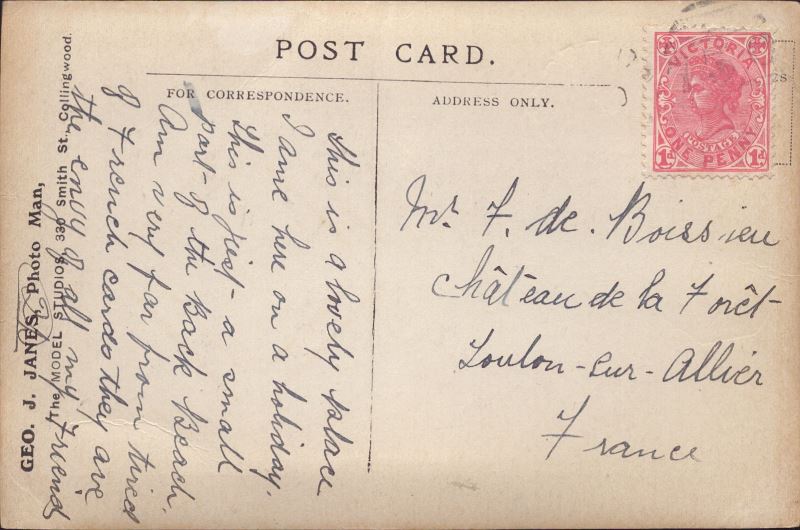 POST CARD.
FOR CORRESPONDENCE.
ADDRESS ONLY.
VICTORIA
POSTAGE
ONE PENNY
1d 1d
GEO. J. JANES, Photo Man,
The MODEL STUDIOS, 330 Smith St., Collingwood.
This is a lovely place
I ame here on a holiday.
this is just a small
part of the Back Beach.
Am very far from tired
of French cards they are
the envy of all my Friends
Mr F. de. Boissieu
Château de la Forêt
Toulon-sur-Allier
France